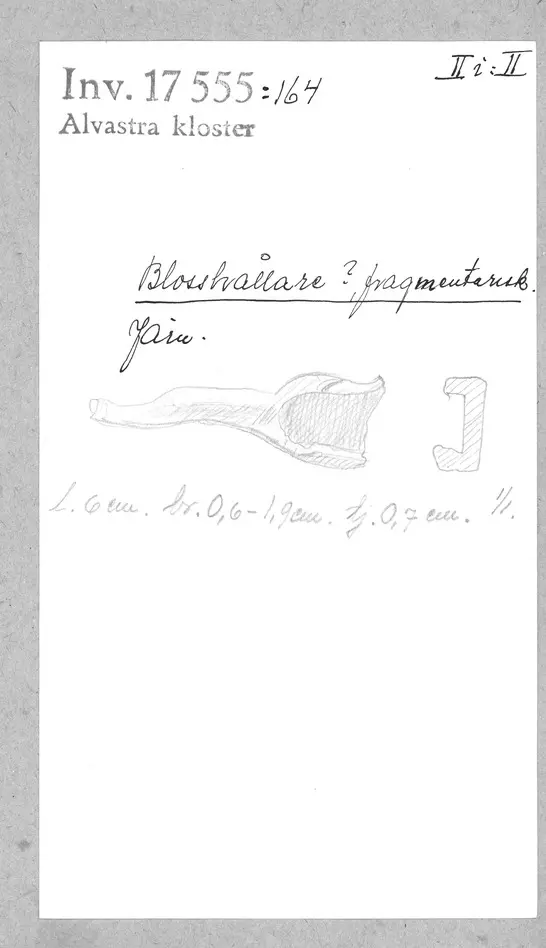 II i:II
Inv. 17 555:164
Alvastra kloster
Blosshållare ?, fragmentarisk.
Järn.
L. 6 cm. br. 0,6-1,9 cm. tj. 0,7 cm. 1/1.